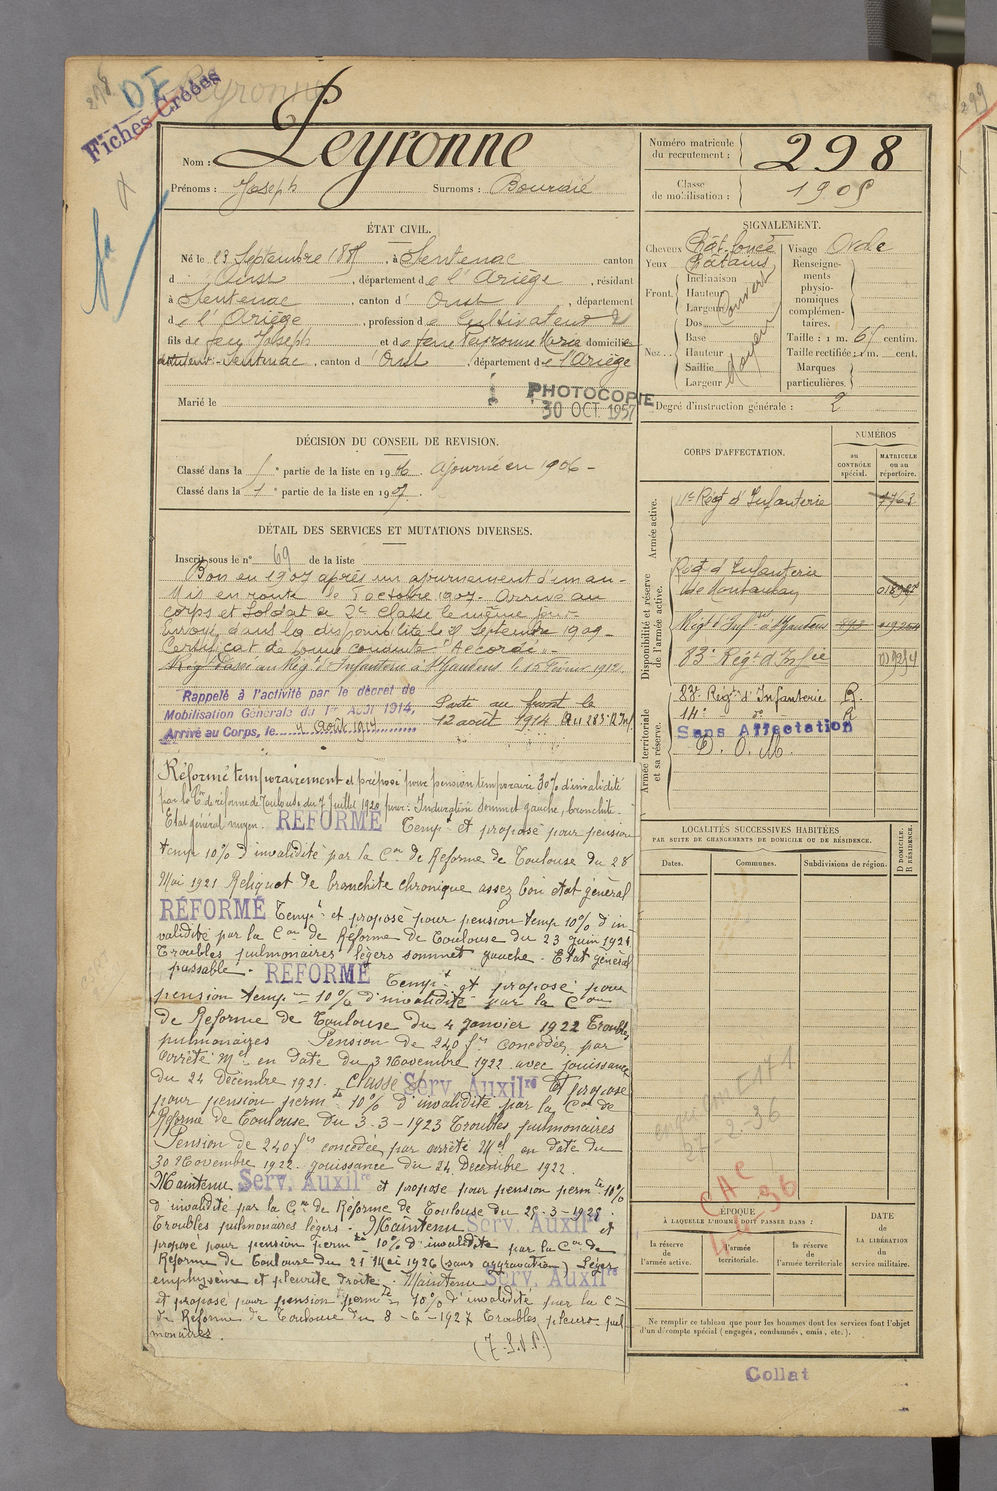 298
DF
Peyronne
Fiches Créées
Nom : Peyronne
Prénoms : Joseph Surnoms : Bourdié
Numéro matricule du recrutement : 298
Classe de mobilisation : 1905
ÉTAT CIVIL.
Né le 23 Septembre 1885, à Sentenac canton
d'Oust, département de l'Ariège, résidant
à Sentenac, canton d'Oust, département
de l'Ariège, profession de Cultivateur
fils de feu Joseph et de feue Peyronne Marie domiciliés
Sentenac, canton d'Oust, département de l'Ariège
Marié le
PHOTOCOPIE
30 OCT. 1957
SIGNALEMENT.
Cheveux Chât. foncé
Yeux Châtains
Front. Inclinaison
Hauteur
Largeur
Couvert
Nez.. Dos
Base
Hauteur
Saillie
Largeur
Moyen
Visage Ovale
Renseignements physionomiques complémentaires.
Taille : 1 m. 65 centim.
Taille rectifiée : 1 m. cent.
Marques particulières.
Degré d'instruction générale : 2
DÉCISION DU CONSEIL DE REVISION.
Classé dans la 5e partie de la liste en 1906. Ajourné en 1906 -
Classé dans la 1e partie de la liste en 1907.
DÉTAIL DES SERVICES ET MUTATIONS DIVERSES.
Inscrit sous le n° 69 de la liste
Bon en 1907 après un ajournement d'un an -
Mis en route le octobre 1907. Arrivé au
corps et Soldat de 2e classe le même jour.
Envoyé dans la disponibilité le Septembre 1909 -
Certificat de bonne conduite "Accordé" -
Passé au Régt d'Infanterie à St Gaudens le 15 Février 1912.
Rappelé à l'activité par le décret de
Mobilisation Générale du 1er Août 1914,
Arrivé au Corps, le 4 Août 1914
Parti au front le
12 août 1914 Au 283e R Inf
Réformé temporairement et proposé pour pension temporaire 30% d'invalidité
par la Con de réforme de Toulouse du 7 Juillet 1920 pour : Induration sommet gauche, bronchite -
Etat général moyen. RÉFORMÉ Tempt et proposé pour pension
temp 10% d'invalidité par la Con de Réforme de Toulouse du 28
Mai 1921 Reliquat de bronchite chronique assez bon état général
RÉFORMÉ Tempt et proposé pour pension temp 10% d'in-
validité par la Con de Réforme de Toulouse du 23 Juin 1921
Troubles pulmonaires légers sommet gauche. Etat général
passable. RÉFORMÉ Tempt et proposé pour
pension temp re 10% d'invalidité par la Con
de Réforme de Toulouse du 4 Janvier 1922 Troubles
pulmonaires Pension de 240 frs concédée par
arrêté Mel en date du 3 Novembre 1922 avec jouissance
du 24 Décembre 1921. Classé Serv. Auxilre et proposé
pour pension perm te 10% d'invalidité par la Con de
Réforme de Toulouse du 3-3-1923 Troubles pulmonaires
Pension de 240 frs concédée par arrêté Mel en date du
30 Novembre 1922. jouissance du 24 Décembre 1922.
Maintenu Serv. Auxilre et proposé pour pension perm te 10%
d'invalidité par la Con de Réforme de Toulouse du
Troubles pulmonaires légers. Maintenu Serv. Auxilre et
proposé pour pension perm te 10% d'invalidité par la Con de
Réforme de Toulouse du 21 Mai 1926 (sans aggravation) Léger
emphysème et pleurite droite. Maintenu Serv. Auxilre
et proposé pour pension perm te 10% d'invalidité par la Con
de Réforme de Toulouse du 8-6-1927 Troubles pleuro-pul
monaires.
CORPS D'AFFECTATION.
NUMÉROS
au CONTRÔLE spécial.
MATRICULE ou au répertoire.
Armée active.
Régt d'Infanterie 7763
Disponibilité et réserve de l'armée active.
Régt d'Infanterie
de Montauban
Régt d'Infrie à St Gaudens
83e Régt d'Infie
Armée territoriale et sa réserve.
83e Régt d'Infanterie R.
14e do R
Sans Affectation
D. O. M.
LOCALITÉS SUCCESSIVES HABITÉES
PAR SUITE DE CHANGEMENTS DE DOMICILE OU DE RÉSIDENCE.
Dates. Communes. Subdivisions de région.
D DOMICILE. R RÉSIDENCE.
27-2-36
CAC
ÉPOQUE
À LAQUELLE L'HOMME DOIT PASSER DANS :
la réserve de l'armée active.
l'armée territoriale.
la réserve de l'armée territoriale
DATE de LA LIBÉRATION du service militaire.
Ne remplir ce tableau que pour les hommes dont les services font l'objet
d'un décompte spécial (engagés, condamnés, omis, etc.).
Collat
299